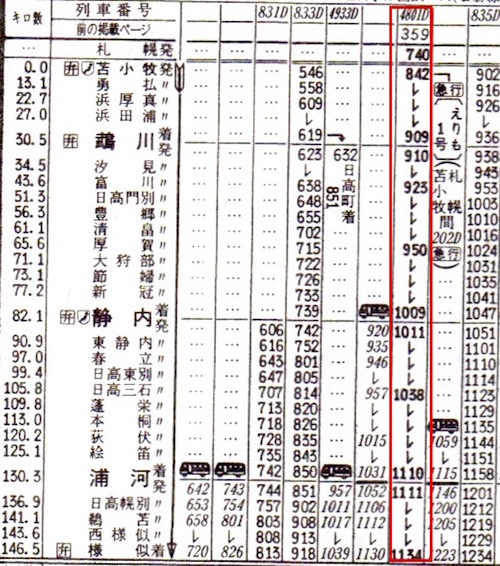 キロ数 列車番号 831D 833D 4933D 4801D 835D
前の掲載ページ 359
… 札幌発 … … … … … … 740 …
0.0 弁 苫小牧発 … … … 546 … … 842 902
13.1 勇払〃 … … … 558 … … レ 急行 916
22.7 浜厚真〃 … … … 609 … … レ 926
27.0 浜田浦〃 … … … レ … … レ レ
30.5 弁 鵡川着 … … … 619 … 909 936
発 … … … 623 632 … 910 938
34.5 汐見〃 … … … レ … レ 943
43.6 富川〃 … … … 638 … 923 953
51.3 日高門別〃 … … … 648 … レ 1003
56.3 豊郷〃 … … … 655 … レ 1010
61.1 清畠〃 … … … 702 … … レ 1016
65.6 厚賀〃 … … … 715 … … 950 急行 1024
71.1 大狩部〃 … … … 722 … … レ 1031
73.1 節婦〃 … … … 726 … … レ 1035
77.2 新冠〃 … … … 733 … … レ 1041
82.1 弁 静内着 … … … 739 … 1009 … 1047
発 … … 606 742 … 920 1011 … 1051
90.9 東静内〃 … … 616 752 … 935 レ … 1101
97.0 春立〃 … … 643 801 … 946 レ … 1110
99.4 日高東別〃 … … 647 805 … レ レ … 1114
105.8 日高三石〃 … … 707 814 … 957 1038 … 1123
109.8 蓬栄〃 … … 713 820 … レ レ … 1129
113.0 本桐〃 … … 718 826 … レ レ 1135
120.2 荻伏〃 … … 728 835 … 1015 レ 1059 1144
125.1 絵笛〃 … … 735 843 … レ レ レ 1151
130.3 浦河着 742 850 1031 1110 1115 1158
発 642 743 744 851 957 1052 1111 1146 1201
136.9 日高幌別〃 653 754 757 902 1011 1106 レ 1200 1212
141.1 鵜苫〃 658 801 803 908 1017 1112 レ 1205 1219
143.6 西様似〃 レ レ 808 913 レ レ レ レ 1229
146.5 弁 様似着 720 826 813 918 1039 1130 1134 1223 1234
日高町着
851
えりも1号
苫小牧
札幌間
202D